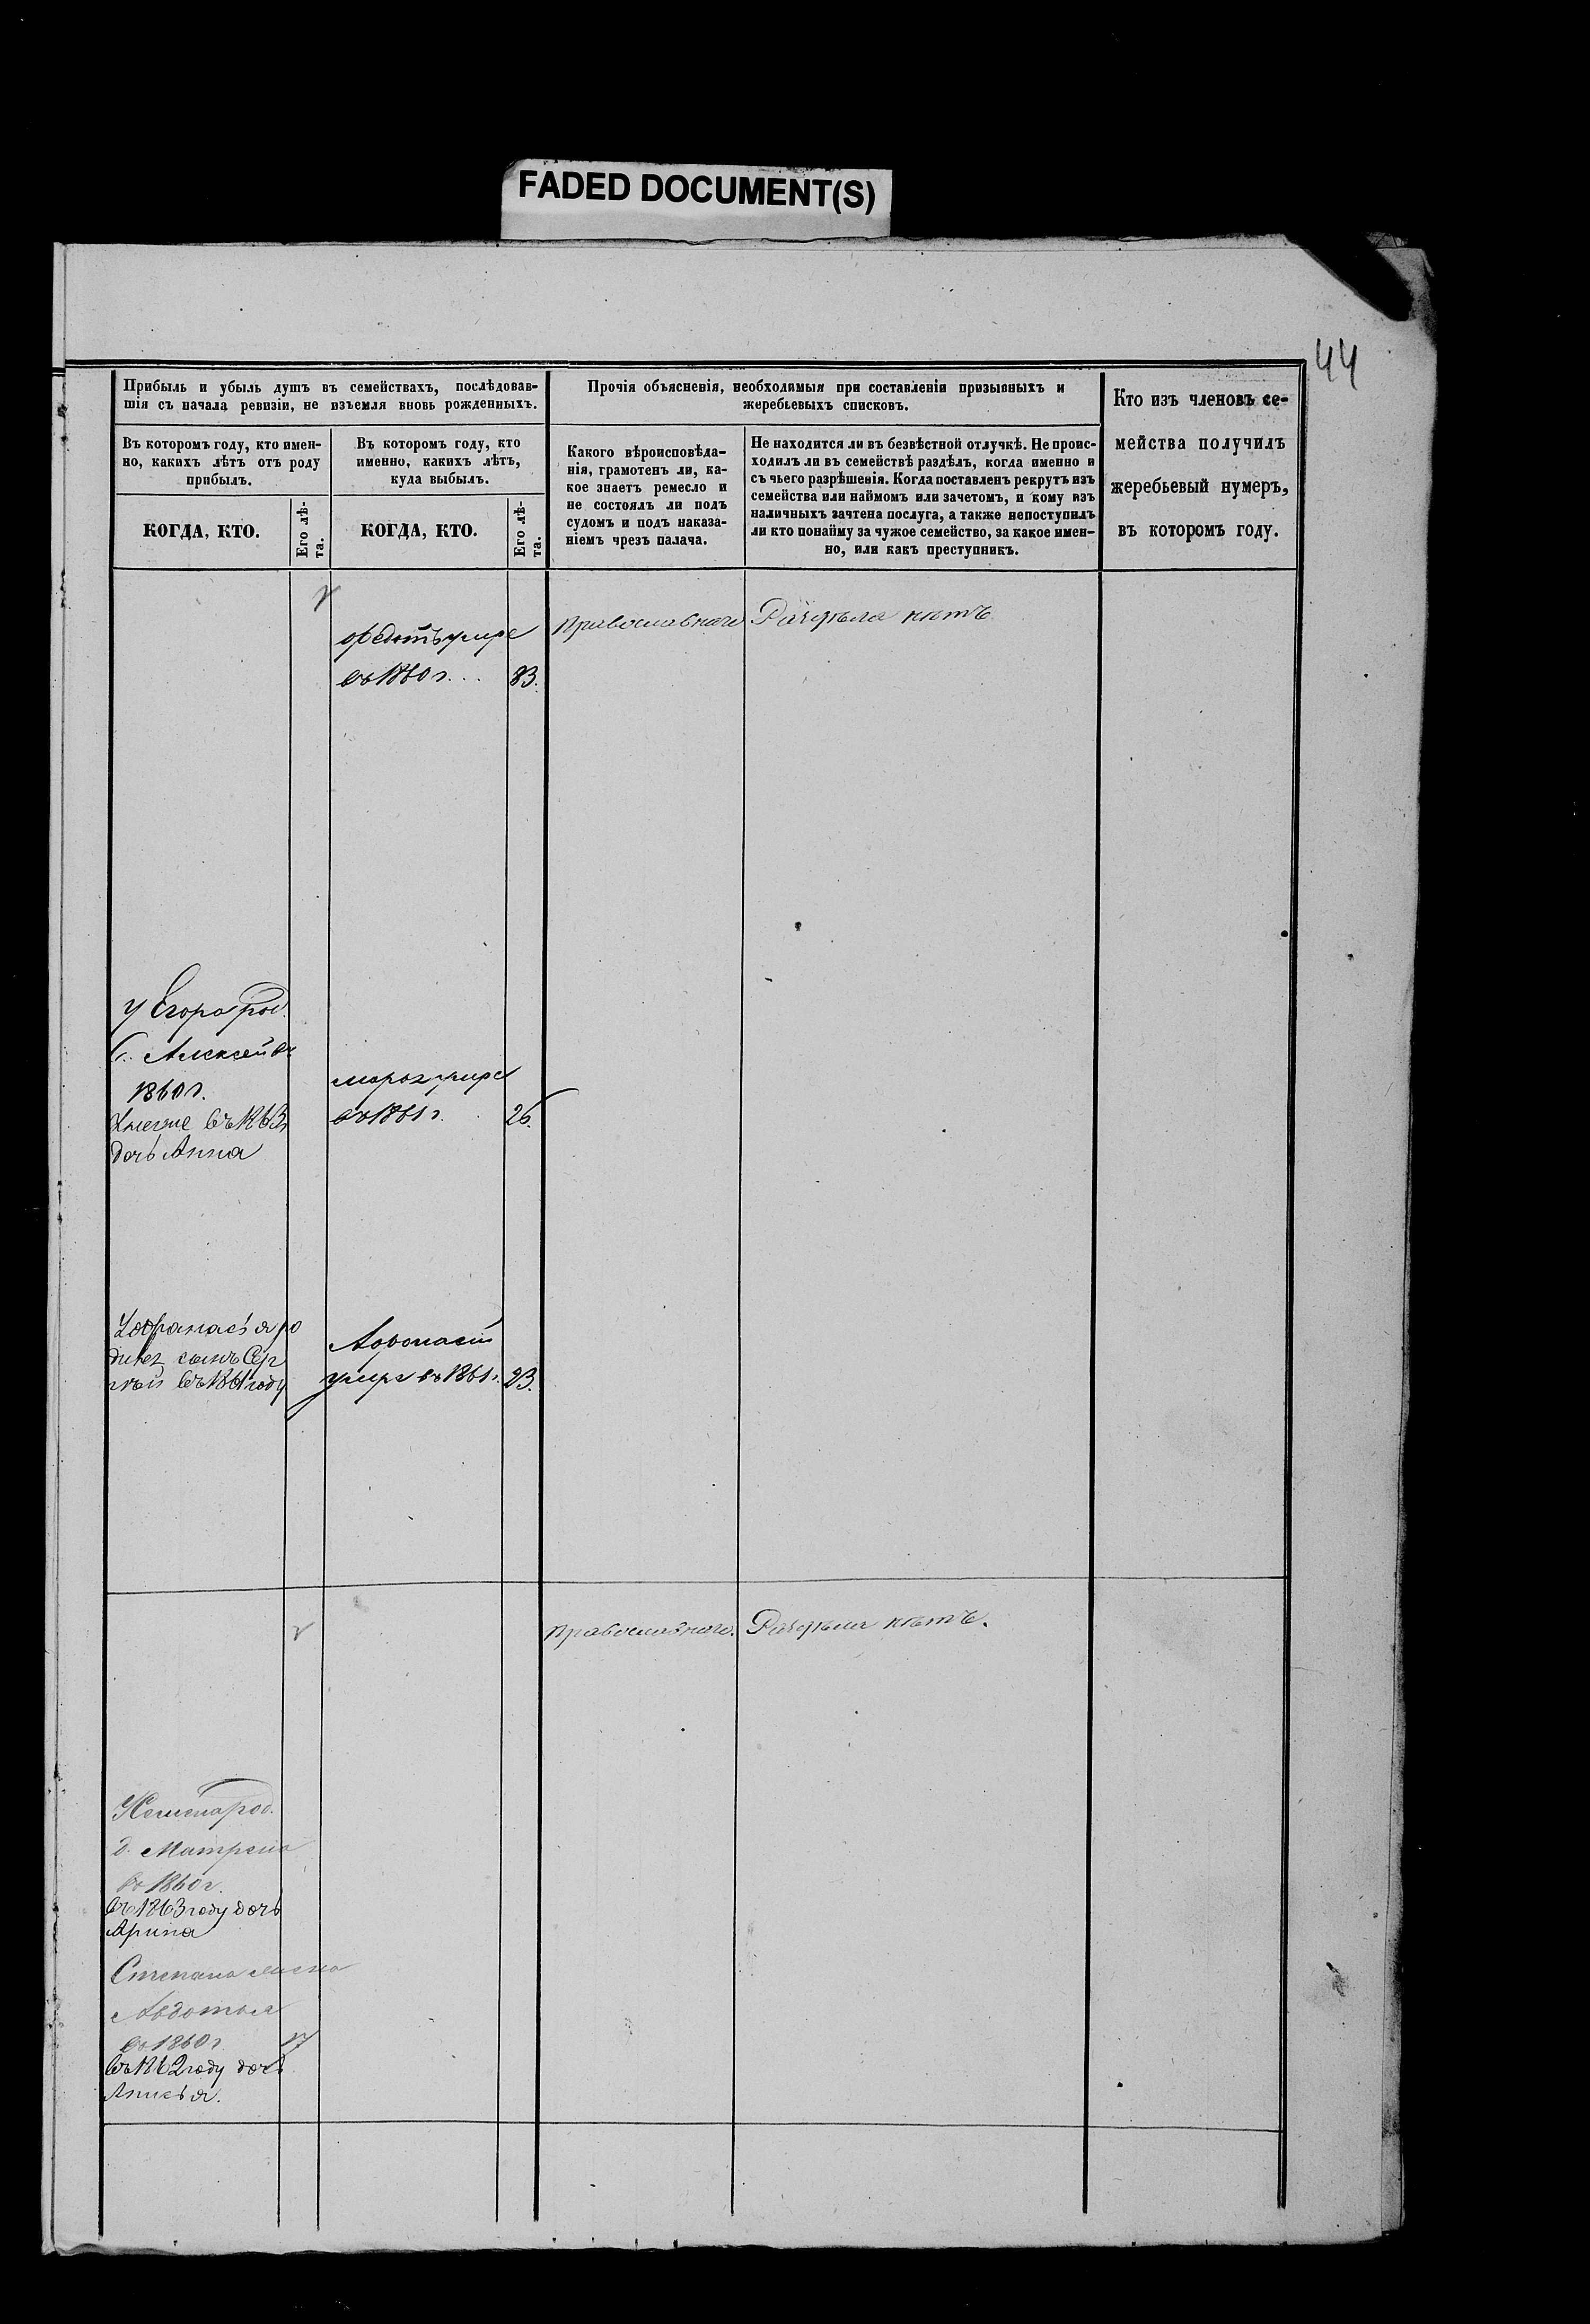 FADED DOCUMENT(S)
44
Прибыль и убыль душъ въ семействахъ, послѣдовав-
шія съ начала ревизіи, не изъемля вновь рожденныхъ.
Въ которомъ году, кто имен-
но, какихъ лѣтъ отъ роду
прибылъ.
КОГДА, КТО.
Его лѣ-
та.
Въ которомъ году, кто
именно, какихъ лѣтъ,
куда выбылъ.
КОГДА, КТО.
Его лѣ-
та.
Прочія объясненія, необходимыя при составленіи призывныхъ и
жеребьевыхъ списковъ.
Какого вѣроисповѣда-
нія, грамотенъ ли, ка-
кое знаетъ ремесло и
не состоялъ ли подъ
судомъ и подъ наказа-
ніемъ чрезъ палача.
Не находится ли въ безвѣстной отлучкѣ. Не проис-
ходилъ ли въ семействѣ раздѣлъ, когда именно и
съ чьего разрѣшенія. Когда поставленъ рекрутъ изъ
семейства или наймомъ или зачетомъ, и кому изъ
наличныхъ зачтена послуга, а также непоступилъ
ли кто понайму за чужое семейство, за какое имен-
но, или какъ преступникъ.
Кто изъ членовъ се-
мейства получилъ
жеребьевый нумеръ,
въ которомъ году.
Федотъ умре
въ 1860 г. 83.
Православнаго
Раздѣла нѣтъ
У Егора род.
С. Алексей въ
1860 г.
въ 1863
дочь Анна
умре
въ 1861 г. 26.
У Афанасья ро
дился сынъ Сер
гѣй въ 1861 году
Афонасій
умре въ 1861 г. 23.
Православнаго.
Раздѣла нѣтъ.
род.
д. Матрена
въ 1860 г.
въ 1863 году дочь
Арина
Степана жена
Авдотья
въ 1860 г. 17
въ 1862 году дочь
Анисья.